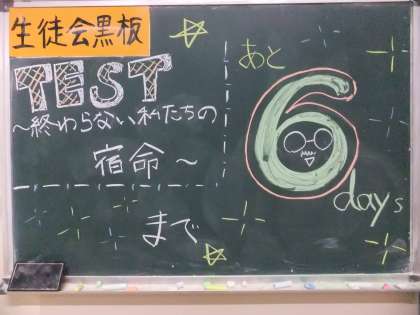 生徒会黒板
TEST
～終わらない私たちの
宿命～
まで
あと
6
days